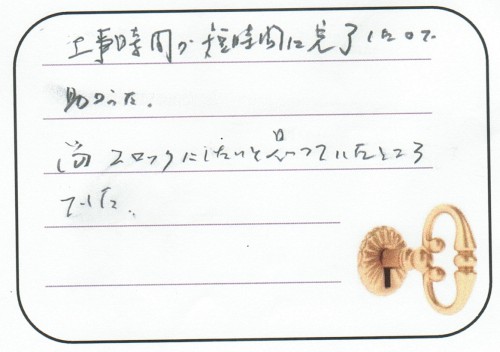 工事時間が短時間に完了したので
助かった。
2ロックにしたいと思っていたところ
でした。